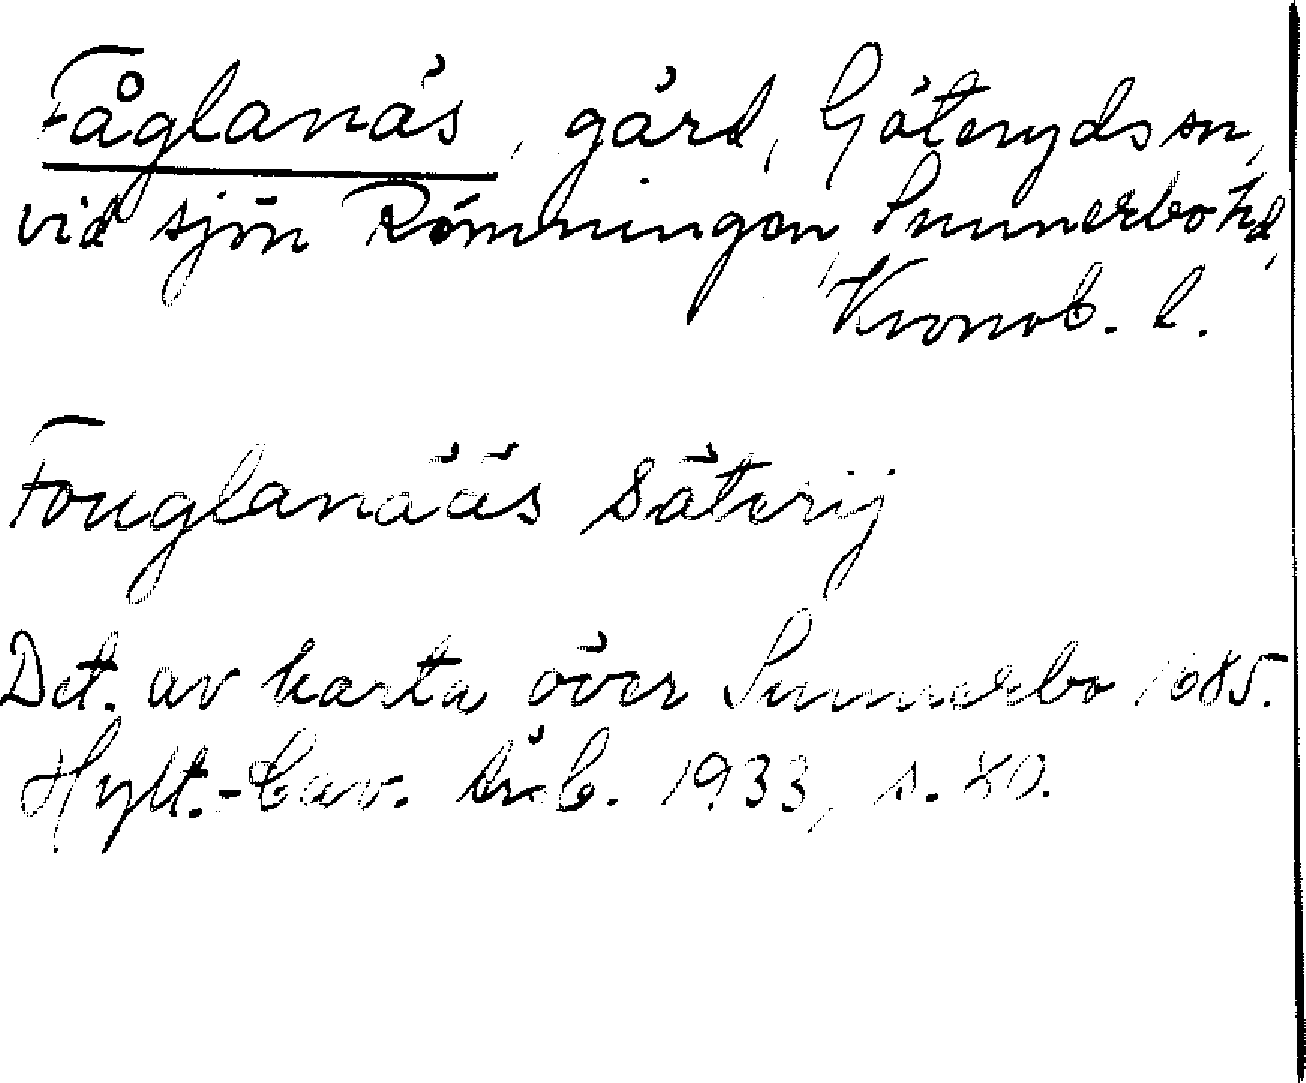 Fåglanäs, gård, Göteryds sn,
vid sjön Römningen, Sunnerbo hd,
Kronob. l.
Fouglanääs Säterij
Det. av karta över Sunnerbo 1685.
Hylt.-Cav. årsb. 1933, s. 80.